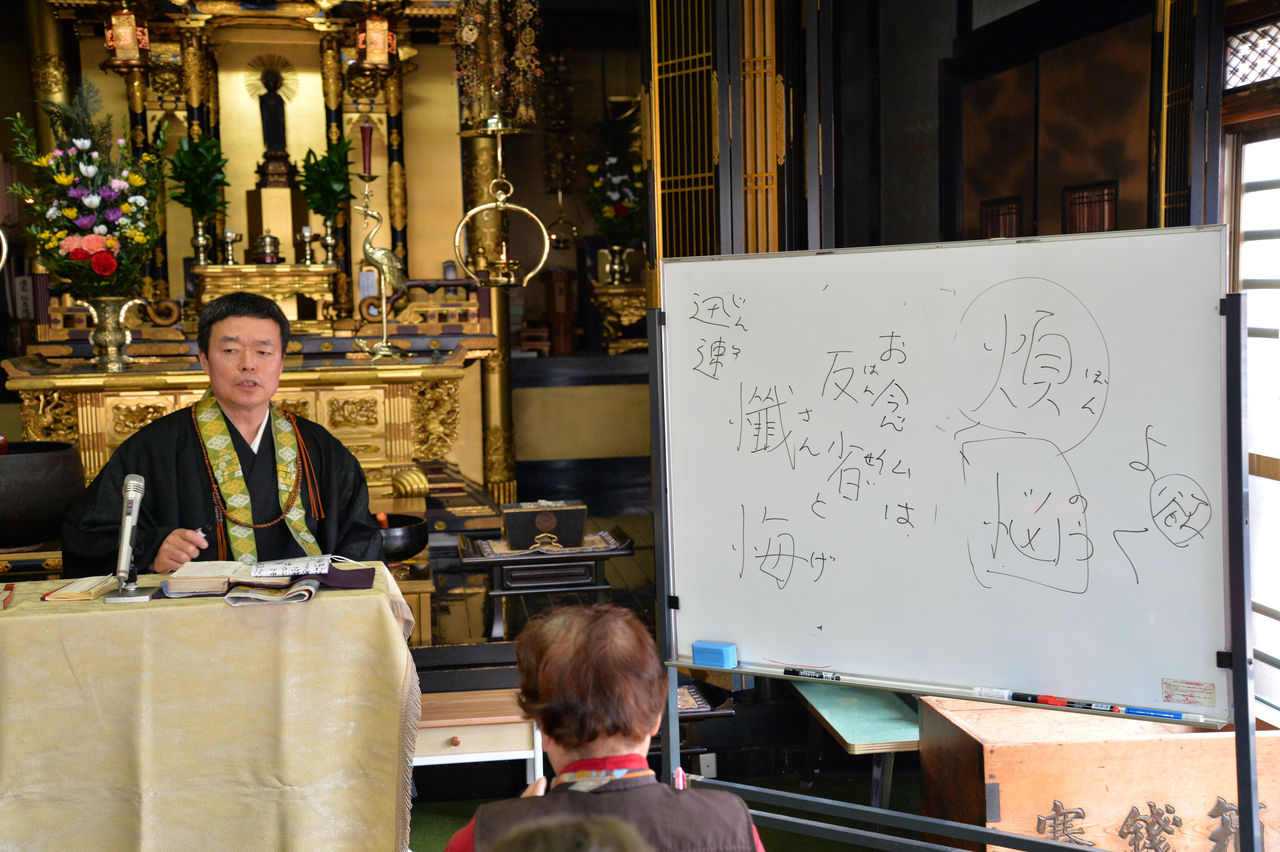 よく
欲
煩悩
ぼんのう
お念仏は
反省と
はんせい
懺悔
さんげ
迅速
じん
賽銭